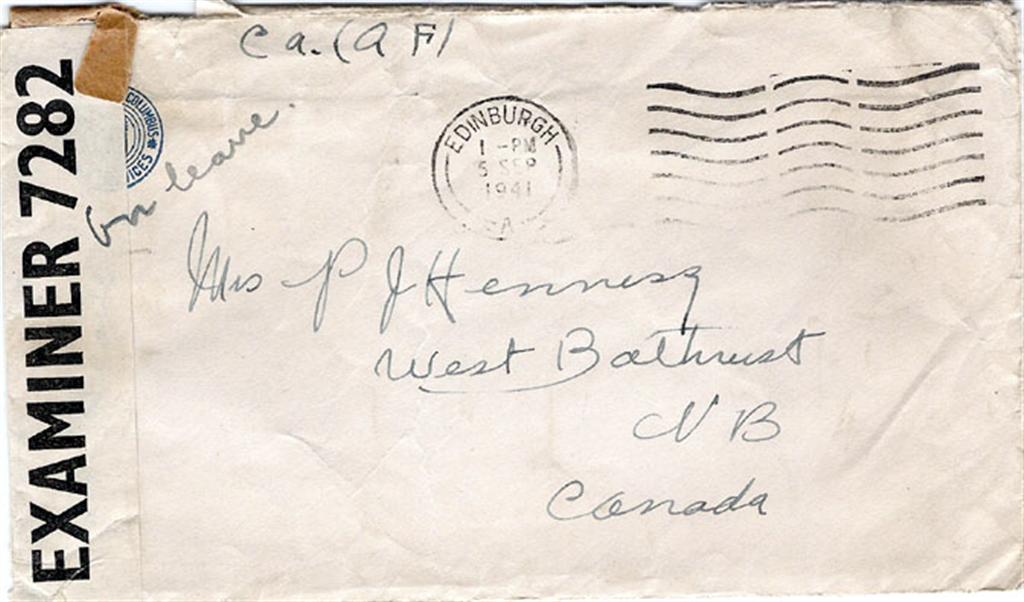 Ca. (A F)
on leave.
EXAMINER 7282
COLUMBUS
VICES
EDINBURGH
1 - PM
5 SEP
1941
A
Mrs P J Hennesy
West Bathurst
N B
Canada